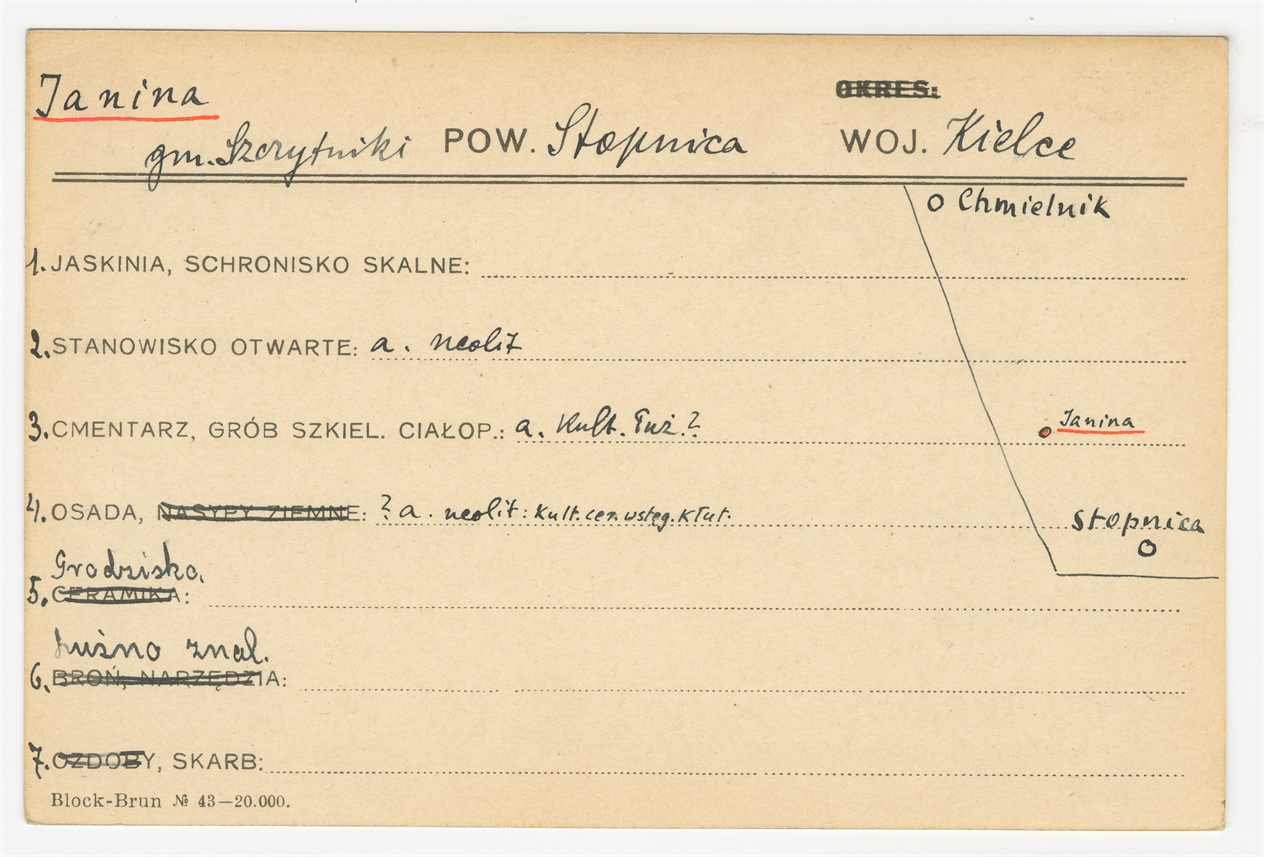 Janina
OKRES:
gm. Szczytniki POW. Stopnica WOJ. Kielce
o Chmielnik
1. JASKINIA, SCHRONISKO SKALNE:
2. STANOWISKO OTWARTE: a. neolit
3. CMENTARZ, GRÓB SZKIEL. CIAŁOP.: a. Kult. Łuż.?
Janina
4. OSADA, NASYPY ZIEMNE: ? a. neolit: Kult. cer. wstęg. kłut.
Stopnica
Grodzisko,
5. CERAMIKA:
Luźno znal.
6. BROŃ, NARZĘDZIA:
7. OZDOBY, SKARB:
Block-Brun № 43—20.000.